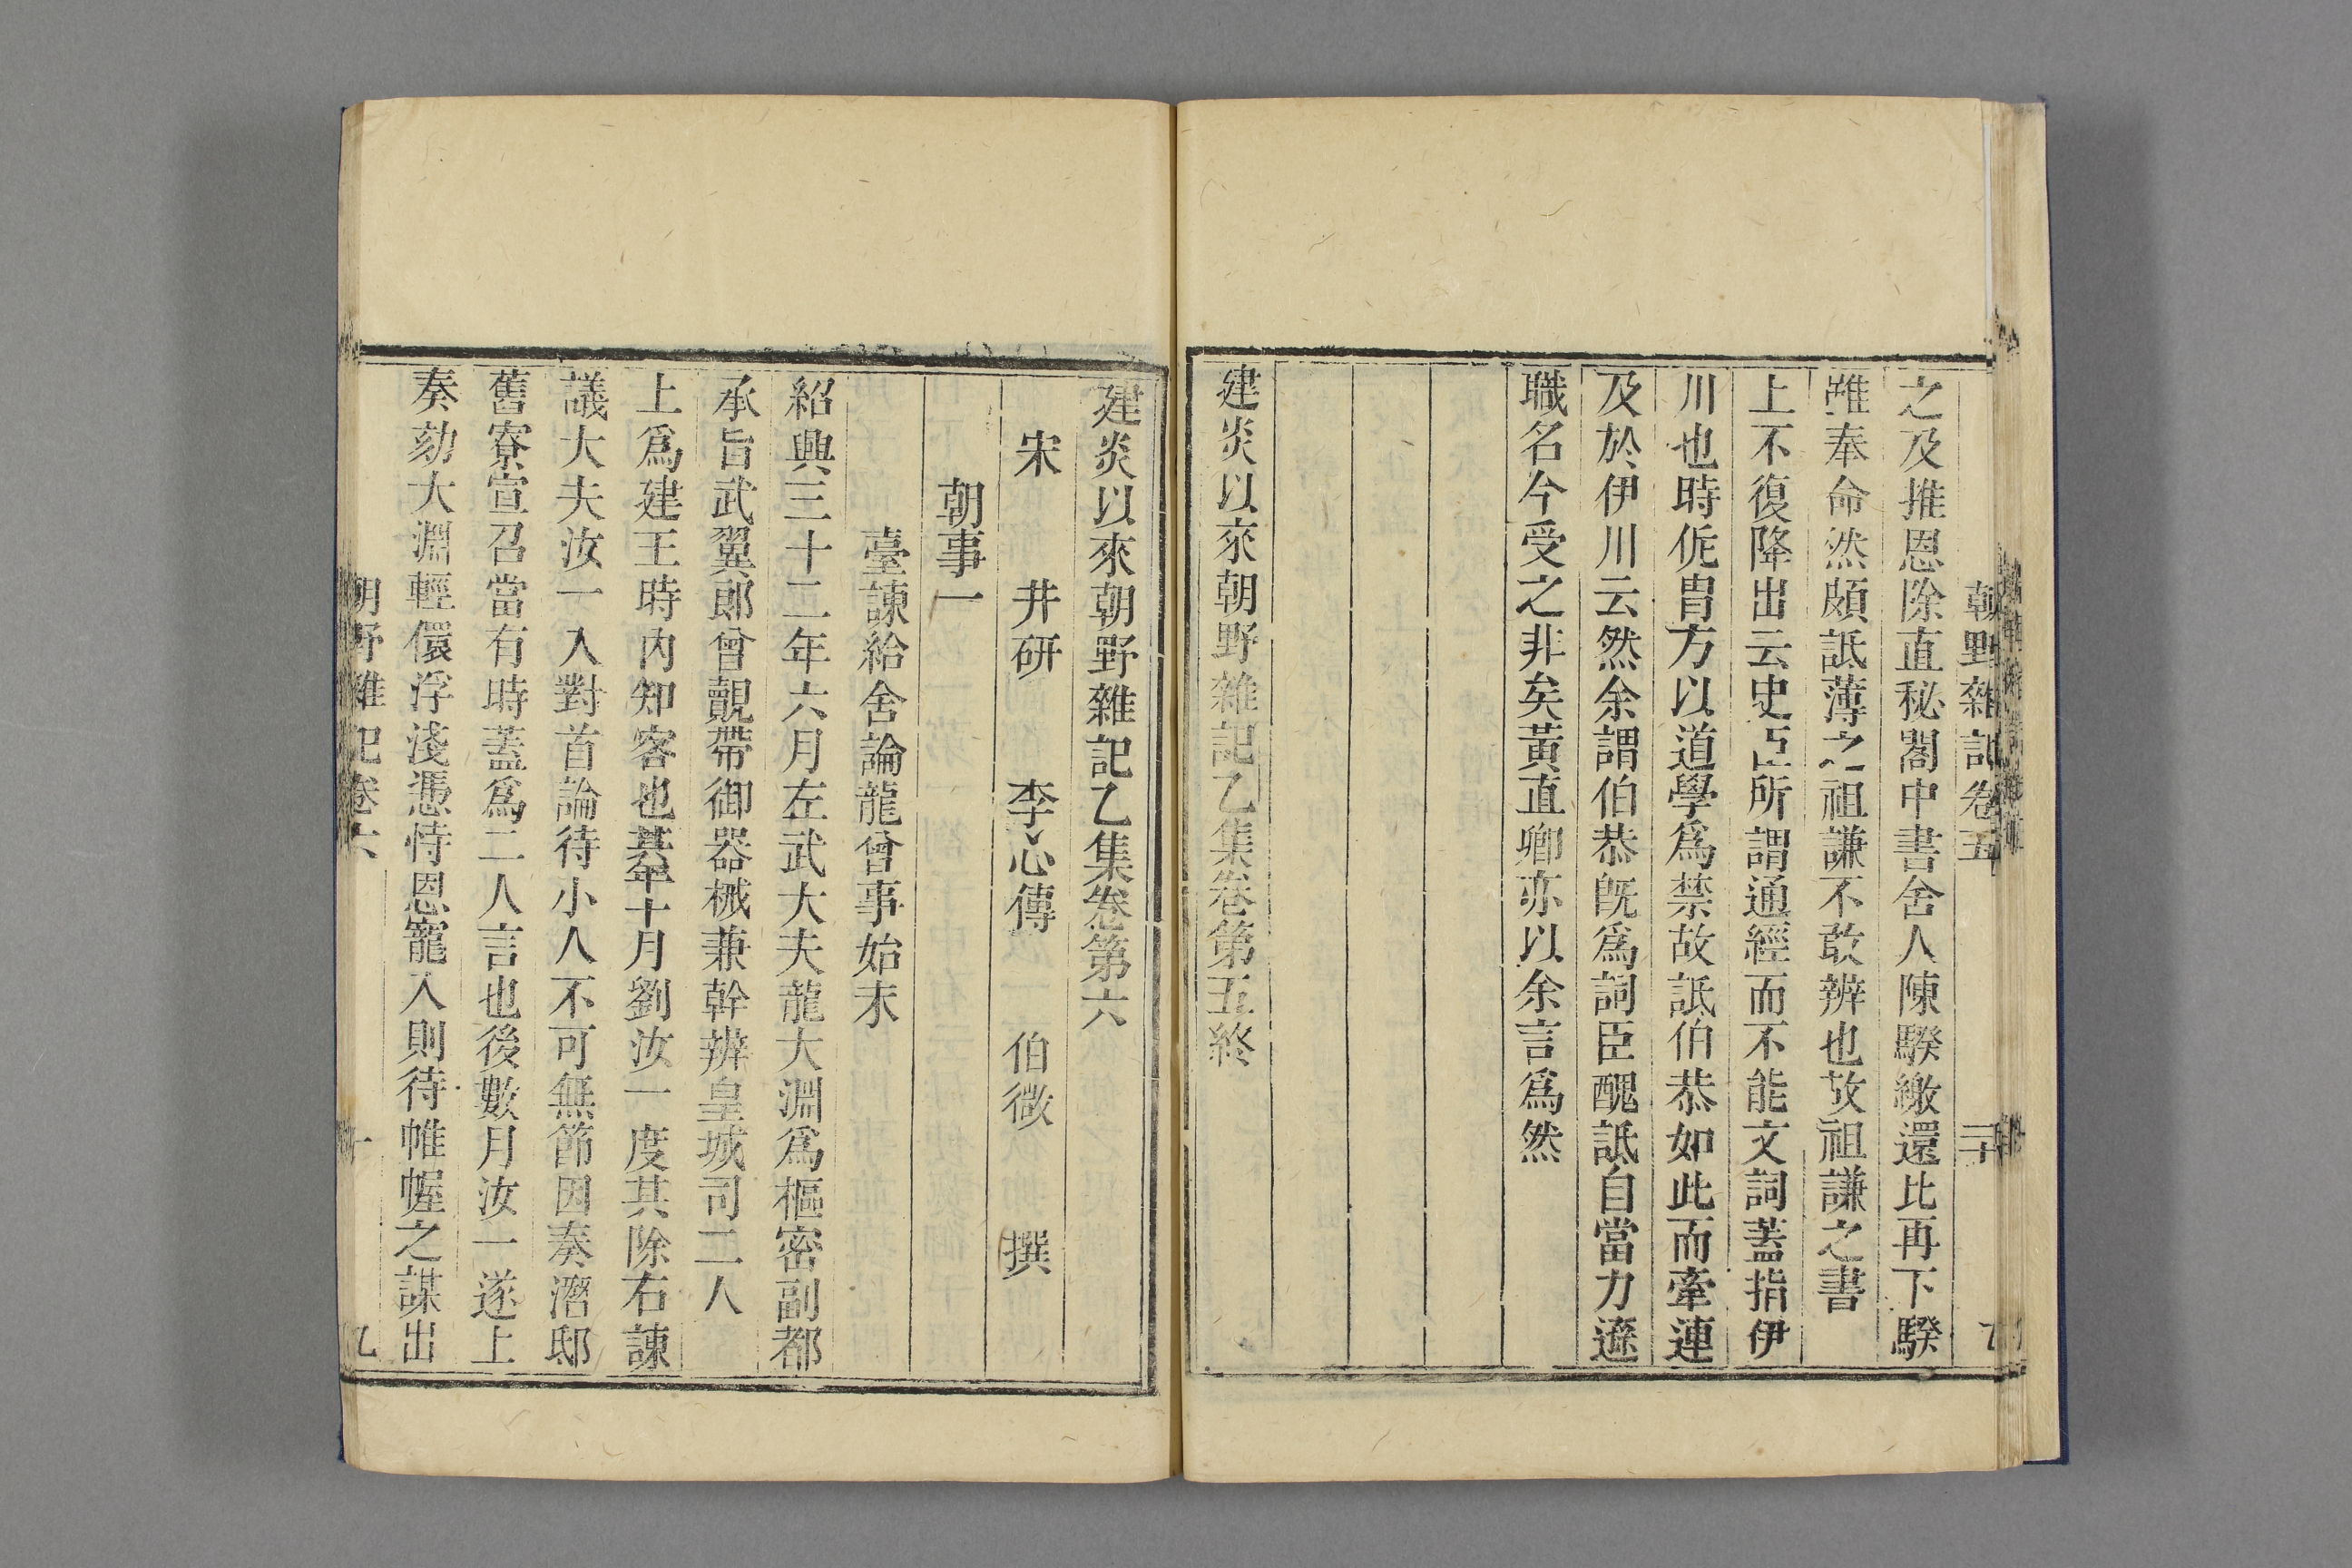 朝野雜記卷五 二十
之及推恩除直秘閣中書舍人陳騤繳還比再下騤
雖奉命然頗詆薄之祖謙不敢辨也故祖謙之書
上不復降出云史臣所謂通經而不能文詞蓋指伊
川也時侂胄方以道學爲禁故詆伯恭如此而牽連
及於伊川云然余謂伯恭旣爲詞臣醜詆自當力遜
職名今受之非矣黃直卿亦以余言爲然
建炎以來朝野雜記乙集卷第五終
建炎以來朝野雜記乙集卷第六
宋 井研 李心傳 伯微 撰
朝事一
臺諫給舍論龍曾事始末
紹興三十二年六月左武大夫龍大淵爲樞密副都
承旨武翼郎曾覿帶御器械兼幹辨皇城司二人
上爲建王時內知客也其年十月劉汝一度其除右諫
議大夫汝一入對首論待小人不可無節因奏潛邸
舊寮宣召當有時蓋爲二人言也後數月汝一遂上
奏劾大淵輕儇浮淺憑恃恩寵入則待帷幄之謀出
朝野雜記卷六 一